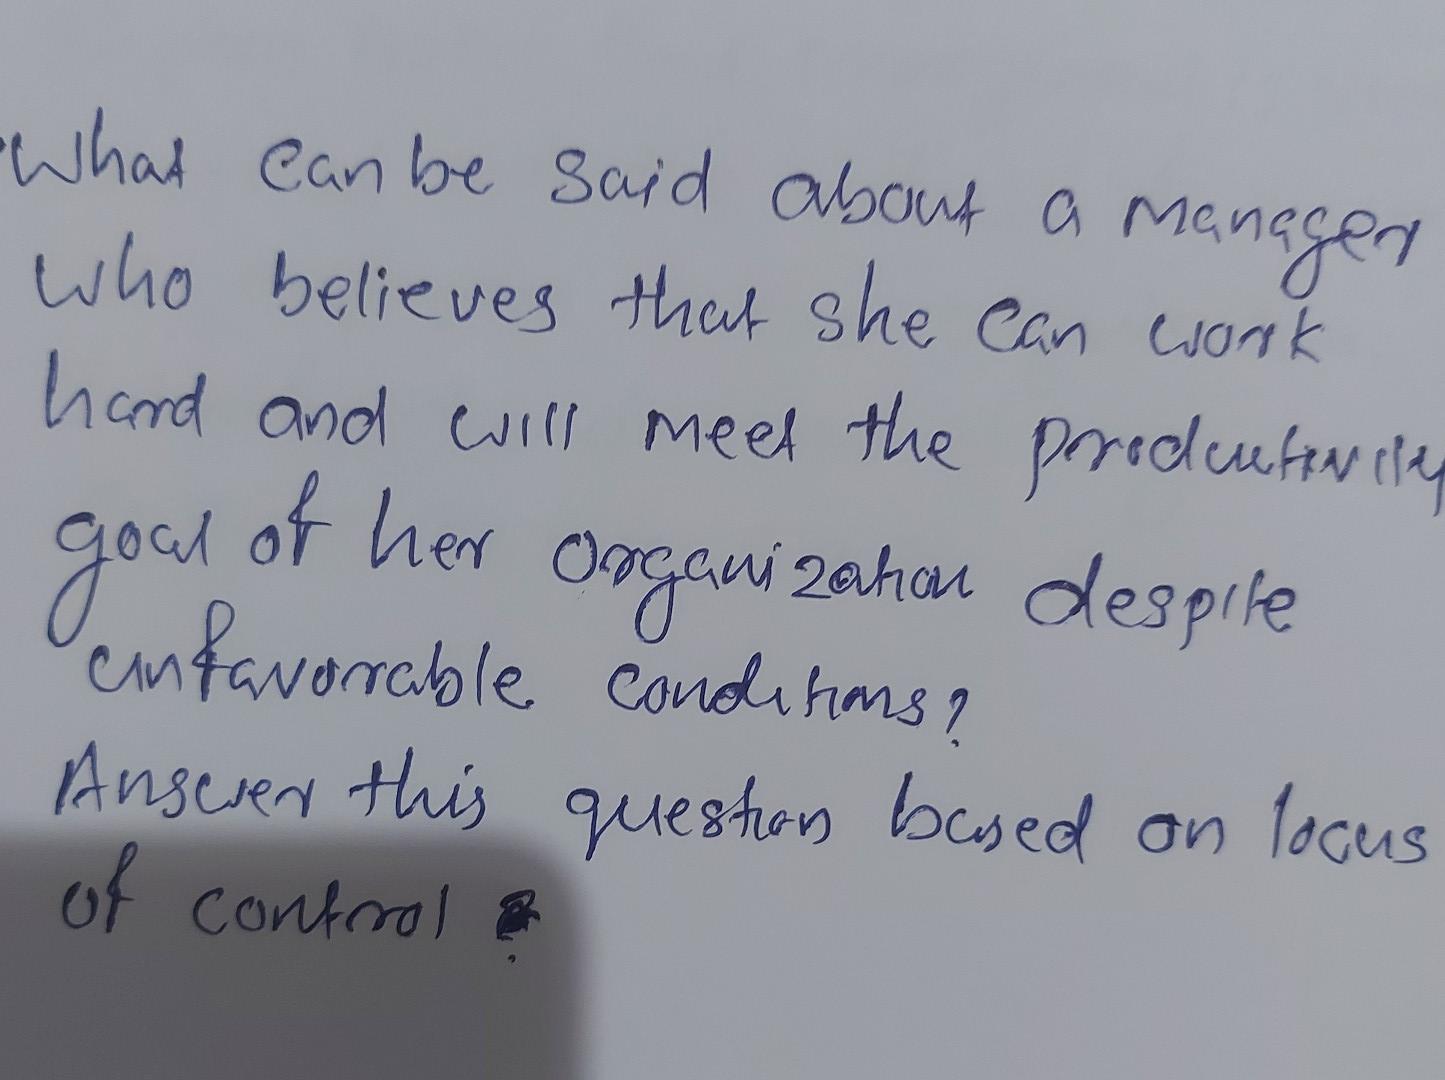 What can be said about a manager
who believes that she can work
hard and will meet the productivity
goal of her organization despite
unfavorable conditions?
Answer this question based on locus
of control?